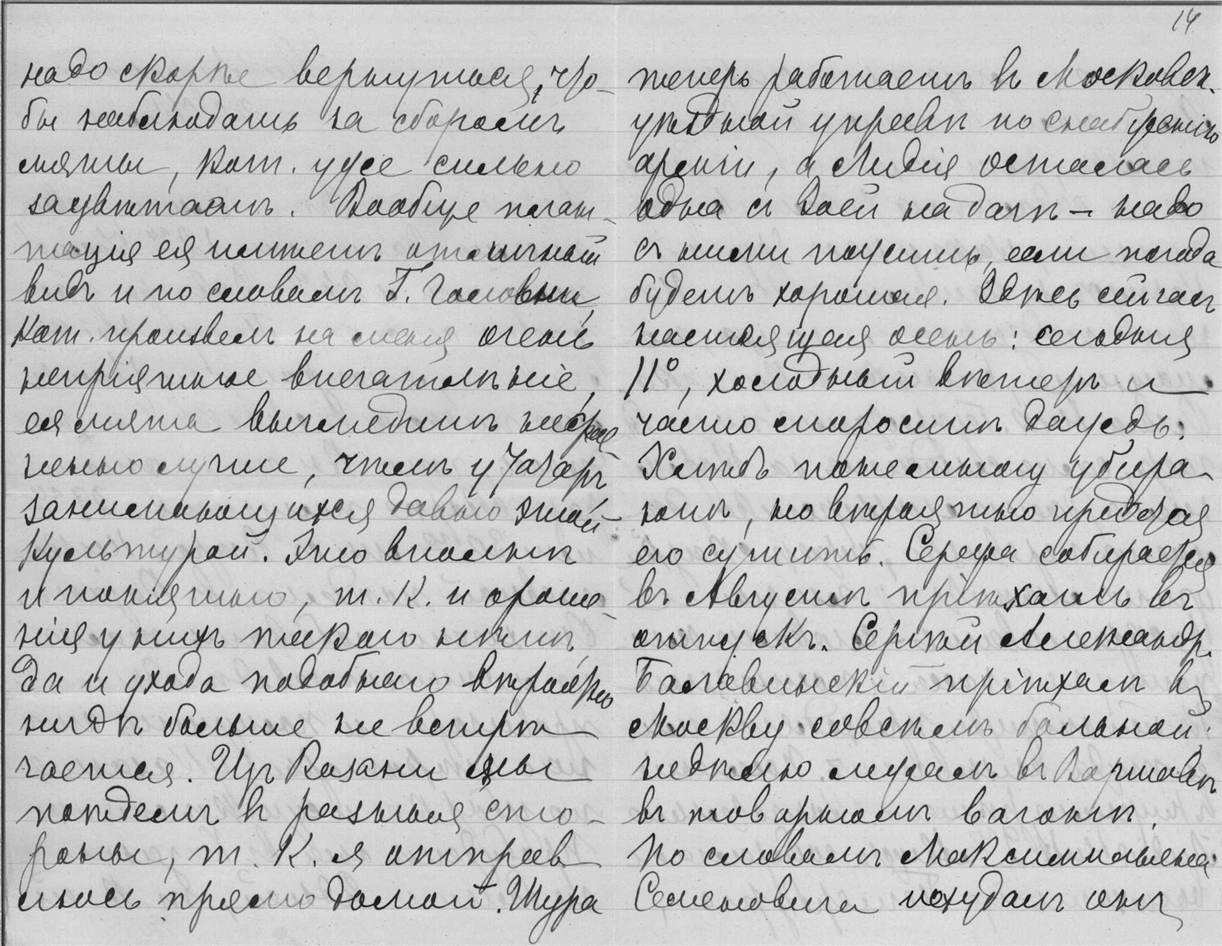 надо скорѣе вернуться, что-
бы наблюдать за сборомъ
мяты, кот. уже сильно
зацвѣтаетъ. Вообще план-
тація ея имѣетъ отличный
видъ и по словамъ Г. Головни,
кот. произвелъ на меня очень
непріятное впечатлѣніе,
ея мята выглядитъ несрав
ненно лучше, чѣмъ у татаръ
занимающихся давно этой
культурой. Это вполнѣ
и понятно, т. к. и ороше-
нія у нихъ такого нѣтъ
да и ухода подобнаго вѣроятно
нигдѣ больше не встрѣ-
чается. Изъ Казани мы
поѣдемъ въ разныя сто-
роны, т. к. я отправ
люсь прямо домой. Шура
14
теперь работаетъ въ Московск.
уѣздной управѣ по снабженію
арміи, а Лидія осталась
одна съ Зоей на дачѣ – надо
съ ними пожить, если погода
будетъ хорошая. Здѣсь сейчасъ
настоящая осень: сегодня
11°, холодный вѣтеръ и
часто моросить дождь.
Хлѣбъ понемногу убира-
ютъ, но вѣроятно придется
его сушить. Сережа собирается
въ Августѣ пріѣхать въ
отпускъ. Сергѣй Александр.
Балавинскій пріѣхалъ въ
Москву совсѣмъ больной:
недѣлю лежалъ въ Варшавѣ
въ товарномъ вагонѣ.
По словамъ Максимильяна
Семеновича похудалъ онъ